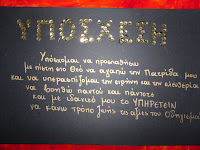 ΥΠΟΣΧΕΣΗ
Υπόσχομαι να προσπαθήσω
με πίστη στο Θεό να αγαπώ την Πατρίδα μου
και να υπερασπίζομαι την ειρήνη και την ελευθερία
να βοηθώ παντού και πάντοτε
και με ιδανικό μου το ΥΠΗΡΕΤΕΙΝ
να κάνω τρόπο ζωής τις αξίες του Οδηγισμού